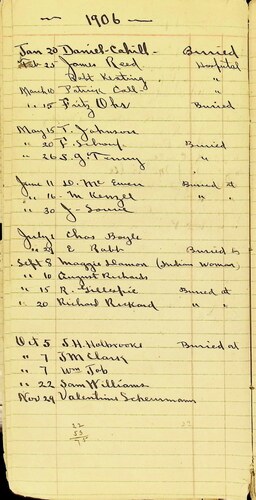 — 1906 —
Jan 20 Daniel Cahill - Buried
Feb 25 James Reed Hospital
Robt Keating "
March 10 Patrick Call - "
" 15 Fritz Uhr Buried
May 15 T. Johnson
" 20 F. Schaup Buried
" 26 S. G. Tenny "
June 11 D. McEwen Buried at
" 16 M Kenzel " "
" 30 J -
July 1 Chas Boyle
" 28 E Rabb Buried by
Sept 8 Maggie Damon (Indian Woman)
" 10 August Richards
" 15 R. Gillespie Buried at
" 20 Richard Rickard " "
Oct 5 S. H. Holbrooks Buried at
" 7 J M Clark
" 7 Wm Job
" 22 Sam Williams
Nov 29 Valentine Scheurmann
22
53
75